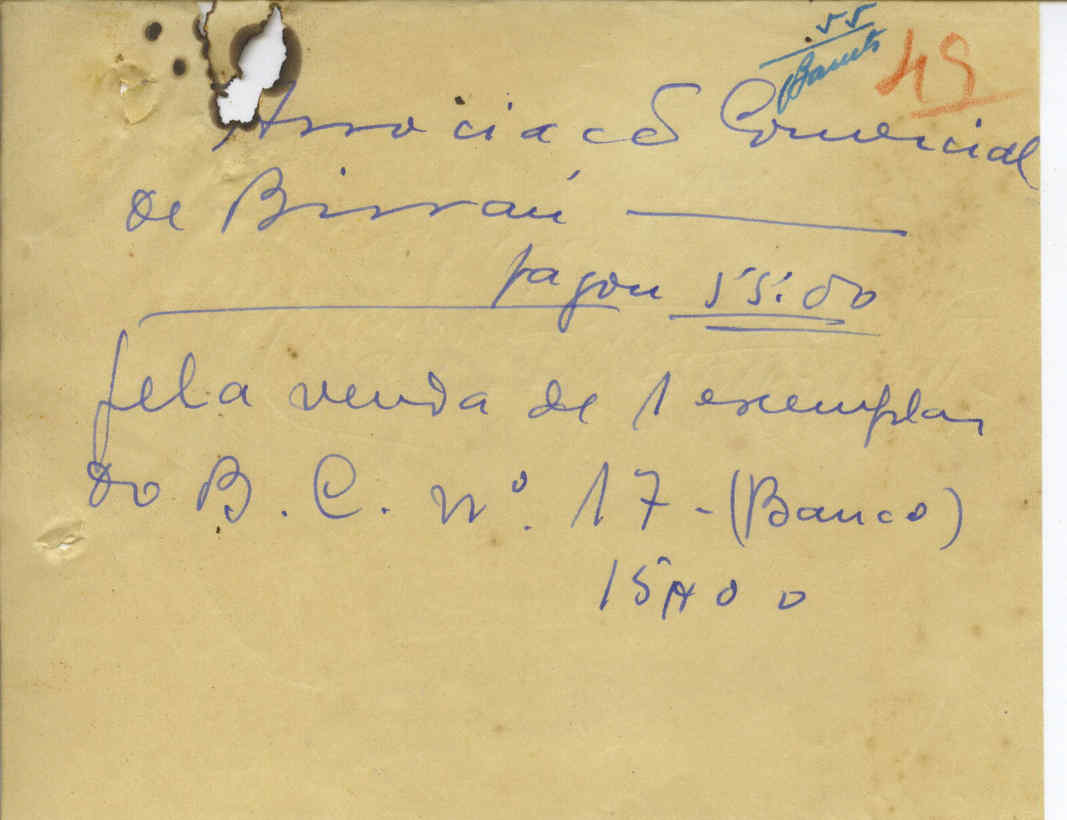 55
49
Associacão Comercial
de Bissau
pagou 55.00
pela venda de 1 exemplar
do B. C. nº. 17 - (Banco)
15$00